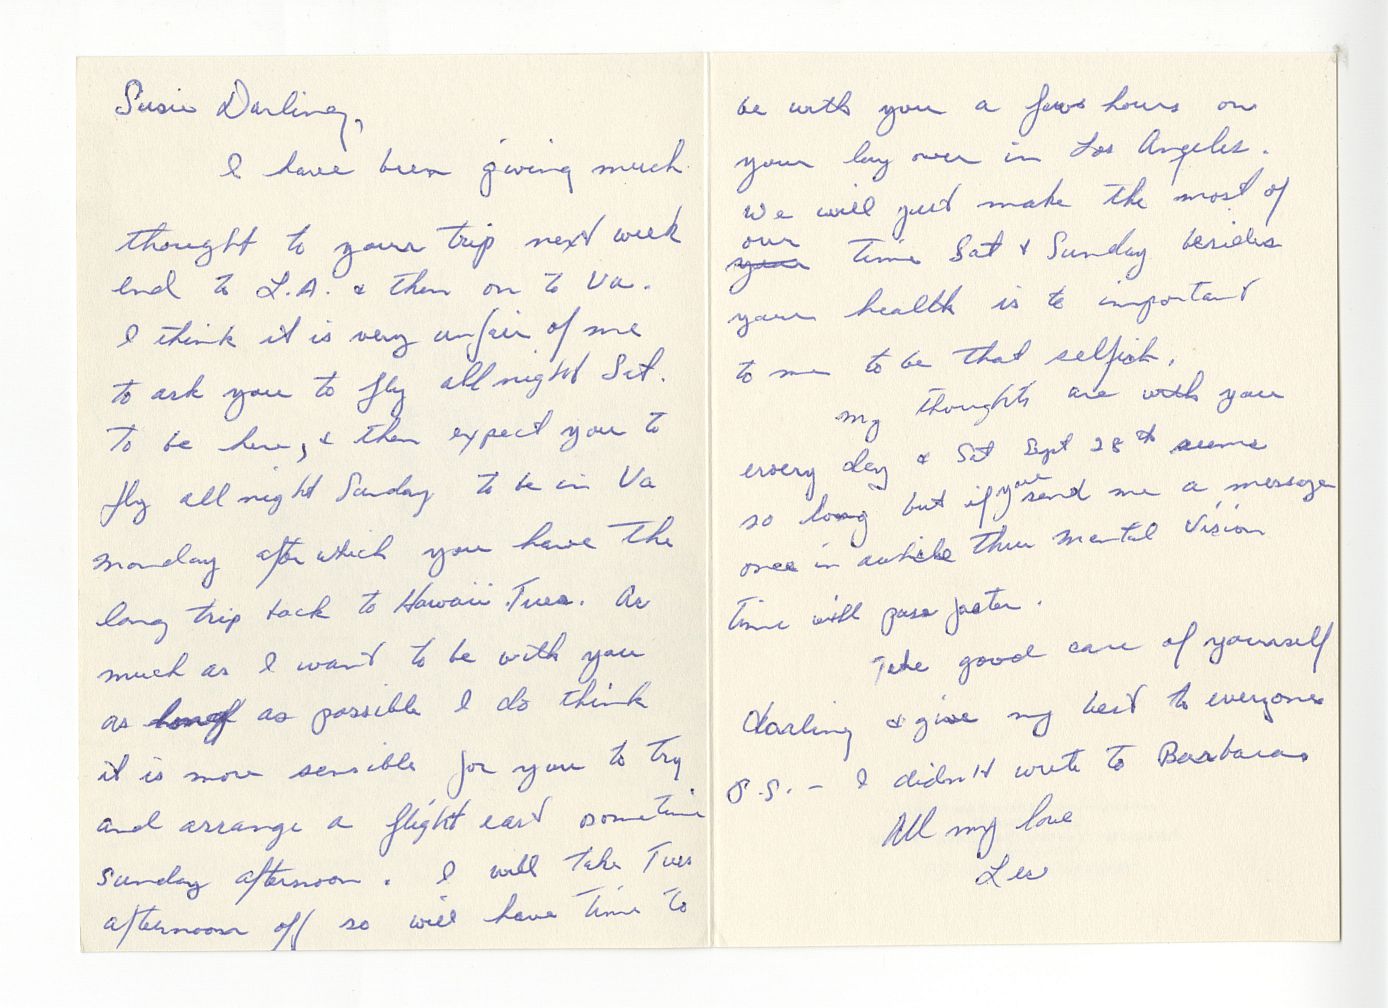 Susie Darling,
I have been giving much
thought to your trip next week
end to L.A. & then on to Va.
I think it is very unfair of me
to ask you to fly all night Sat.
to be here, & then expect you to
fly all night Sunday to be in Va
Monday after which you have the
long trip back to Hawaii Tues. As
much as I want to be with you
as long as possible I do think
it is more sensible for you to try
and arrange a flight east sometime
Sunday afternoon. I will take Tues
afternoon off so will have time to
be with you a few hours on
your lay over in Los Angeles.
We will just make the most of
our
your time Sat & Sunday besides
your health is to important
to me to be that selfish.
My thoughts are with you
every day & Sat Sept 28th seems
so long but if you send me a message
once in awhile thru mental vision
time will pass faster.
Take good care of yourself
darling & give my best to everyone
P.S. - I didn't write to Barbara
All my love
Les